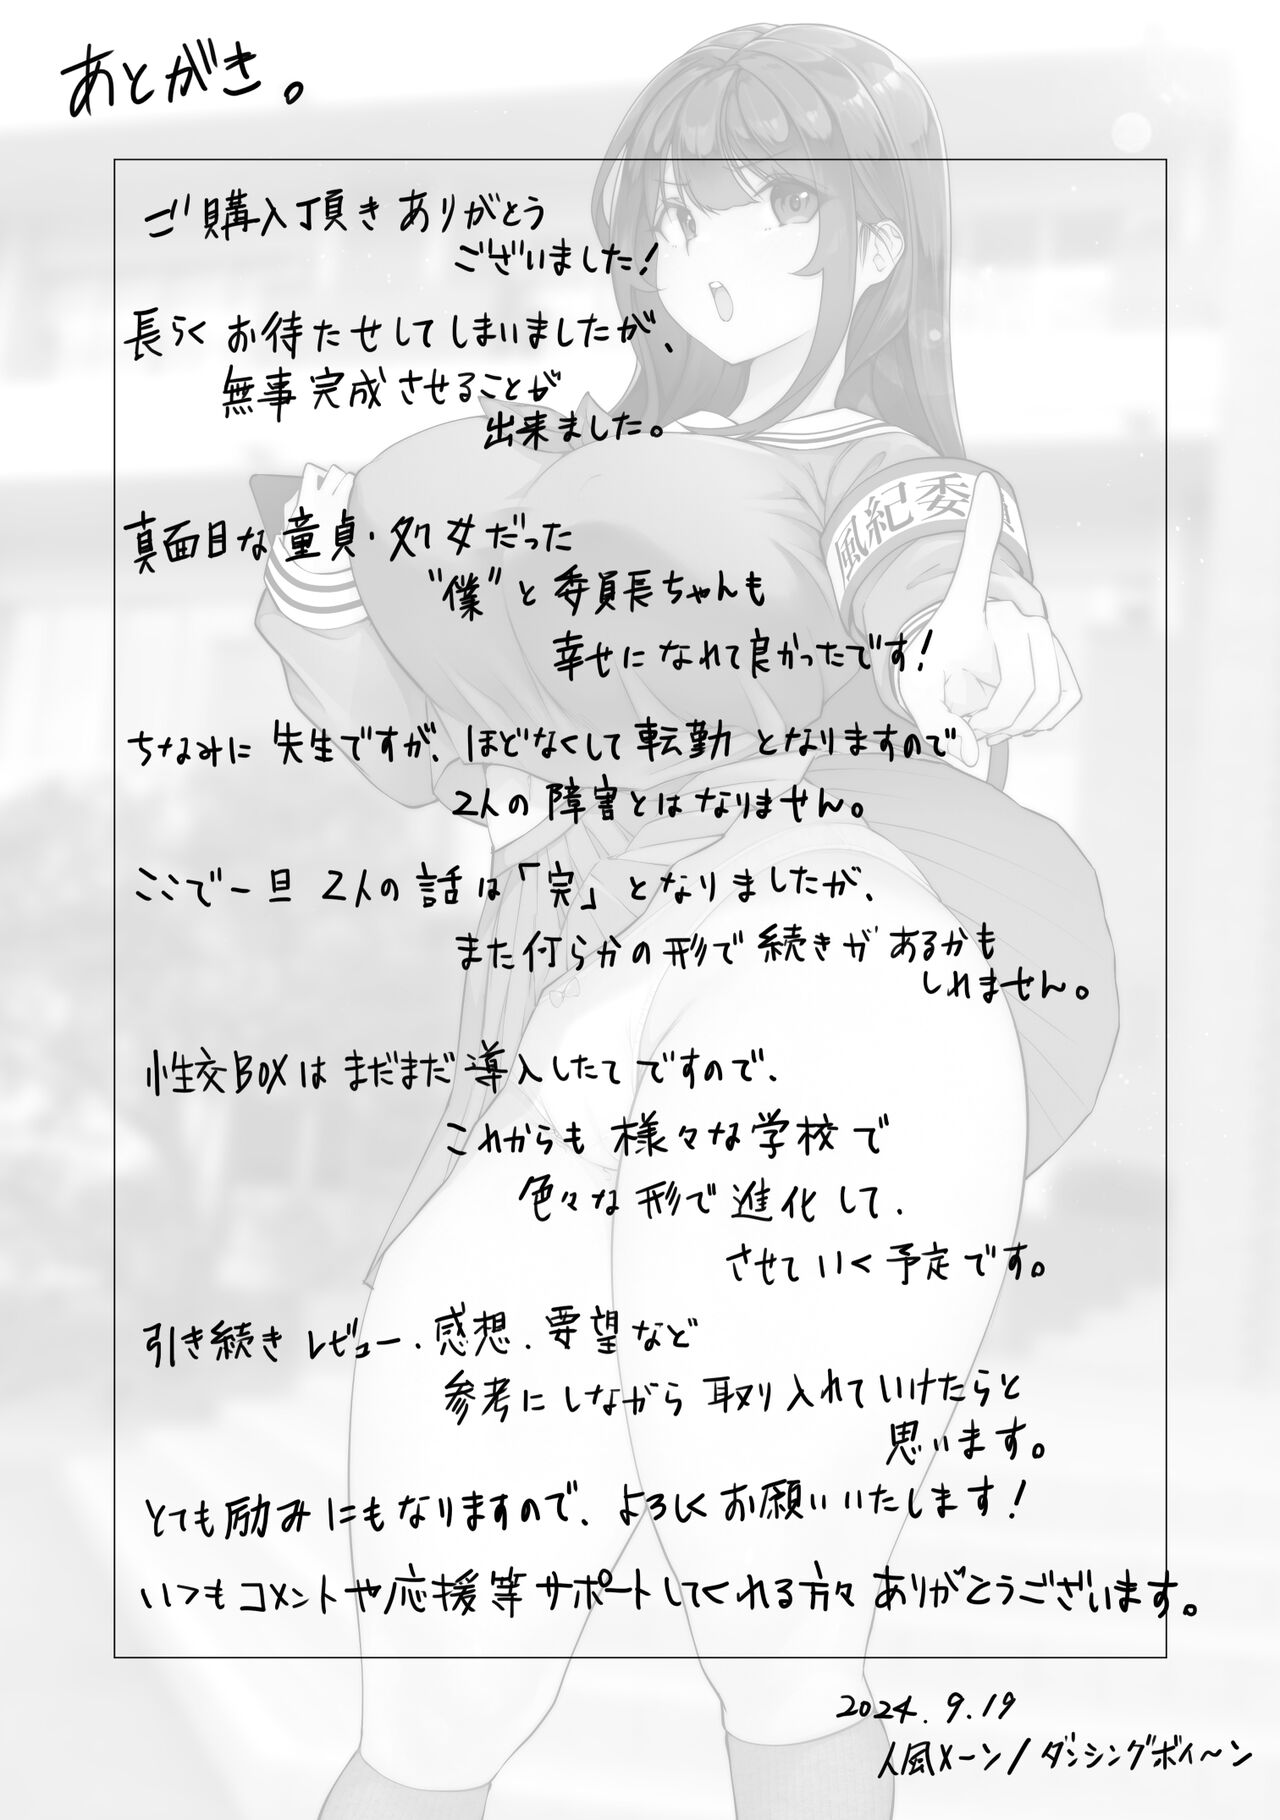 あとがき。
ご購入頂きありがとう
ございました!
長らくお待たせしてしまいましたが、
無事完成させることが
出来ました。
風紀委員
真面目な童貞・処女だった
"僕"と委員長ちゃんも
幸せになれて良かったです!
ちなみに先生ですが、ほどなくして転勤となりますので
2人の障害とはなりません。
ここで一旦2人の話は「完」となりましたが、
また何らかの形で続きがあるかも
しれません。
性交BOXはまだまだ導入したてですので、
これからも様々な学校で
色々な形で進化して、
させていく予定です。
引き続きレビュー・感想・要望など
参考にしながら取り入れていけたらと
思います。
とても励みにもなりますので、よろしくお願いいたします!
いつもコメントや応援等サポートしてくれる方々ありがとうございます。
2024.9.19
人風メーン/ダンシングボイ~ン